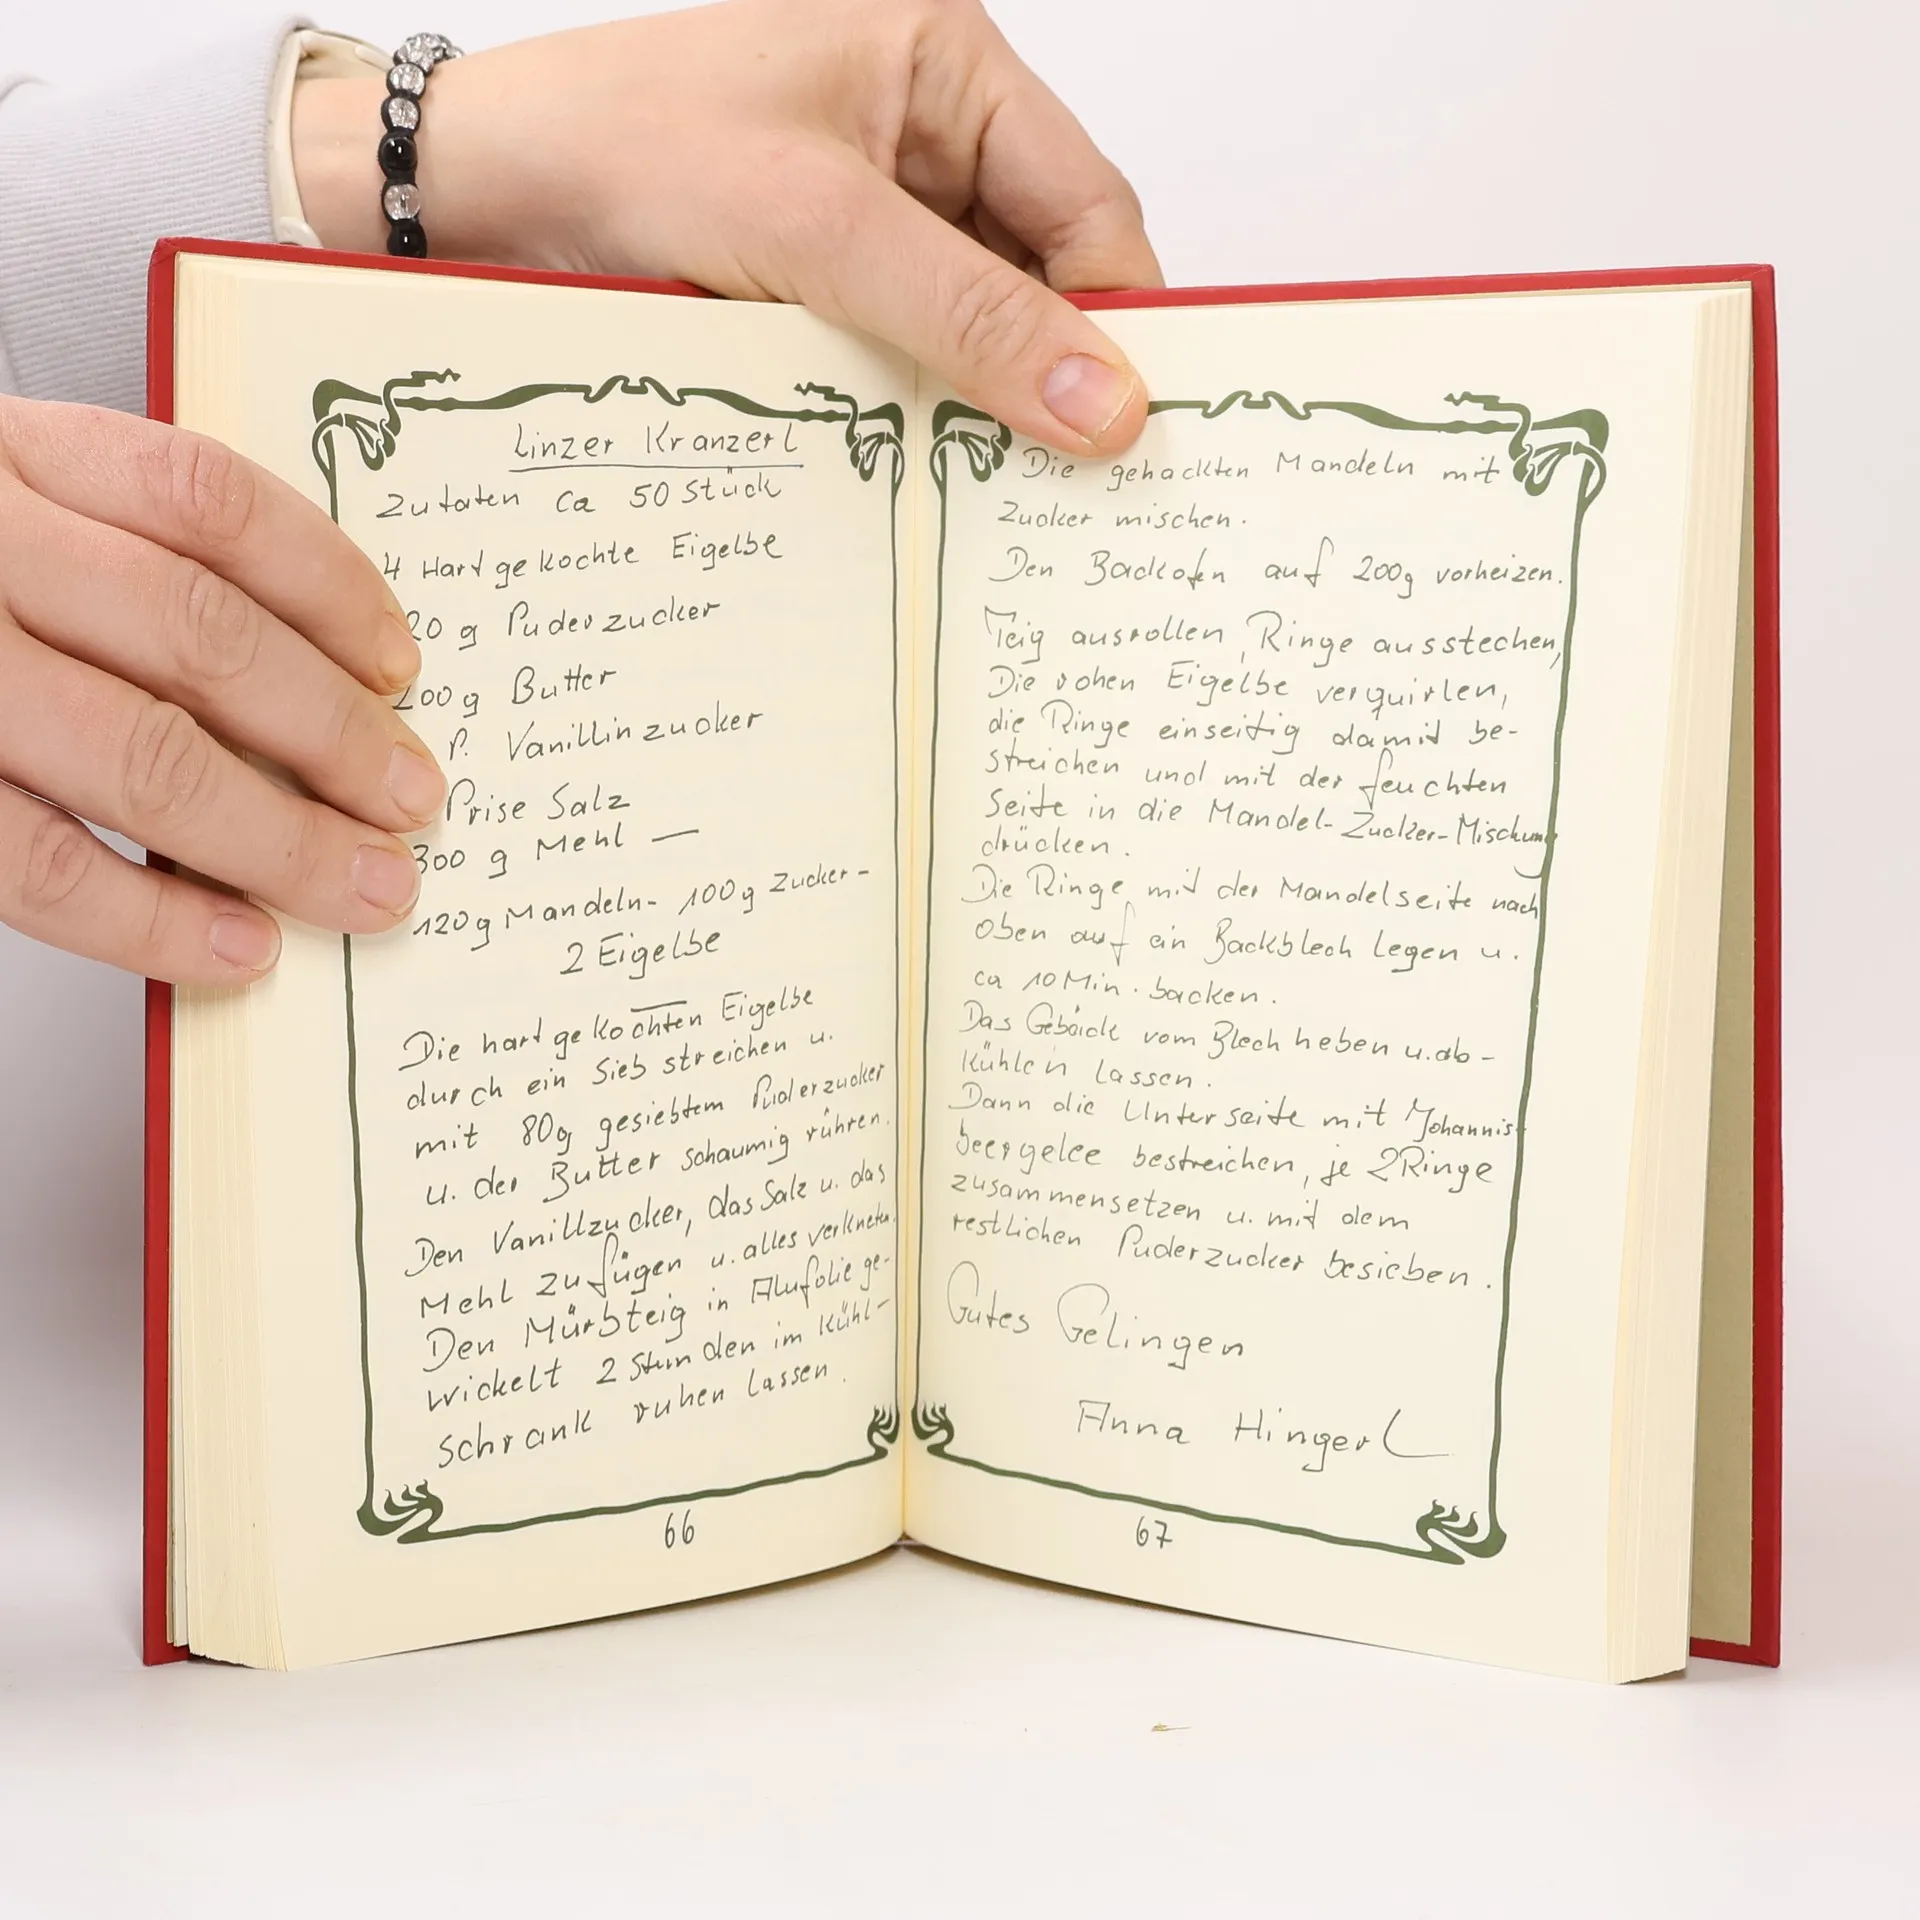 Linzer Kranzerl
Zutaten ca 50 Stück
4 Hart gekochte Eigelbe
20 g Puderzucker
200 g Butter
P. Vanillinzucker
Prise Salz
300 g Mehl —
120g Mandeln- 100g Zucker-
2 Eigelbe
Die hart gekochten Eigelbe
durch ein Sieb streichen u.
mit 80g gesiebtem Puderzucker
u. der Butter schaumig rühren.
Den Vanillzucker, das Salz u. das
Mehl zufügen u. alles verkneten.
Den Mürbteig in Alufolie ge-
wickelt 2 Stunden im Kühl-
schrank ruhen lassen.
66
Die gehackten Mandeln mit
Zucker mischen.
Den Backofen auf 200g vorheizen.
Teig ausrollen, Ringe ausstechen,
Die rohen Eigelbe verquirlen,
die Ringe einseitig damit be-
streichen und mit der feuchten
Seite in die Mandel-Zucker-Mischung
drücken.
Die Ringe mit der Mandelseite nach
oben auf ein Backblech legen u.
ca 10 Min. backen.
Das Gebäck vom Blech heben u. ab-
kühlen lassen.
Dann die Unterseite mit Johannis-
beergelee bestreichen, je 2 Ringe
zusammensetzen u. mit dem
restlichen Puderzucker besieben.
Gutes Gelingen
Anna Hingerl
67